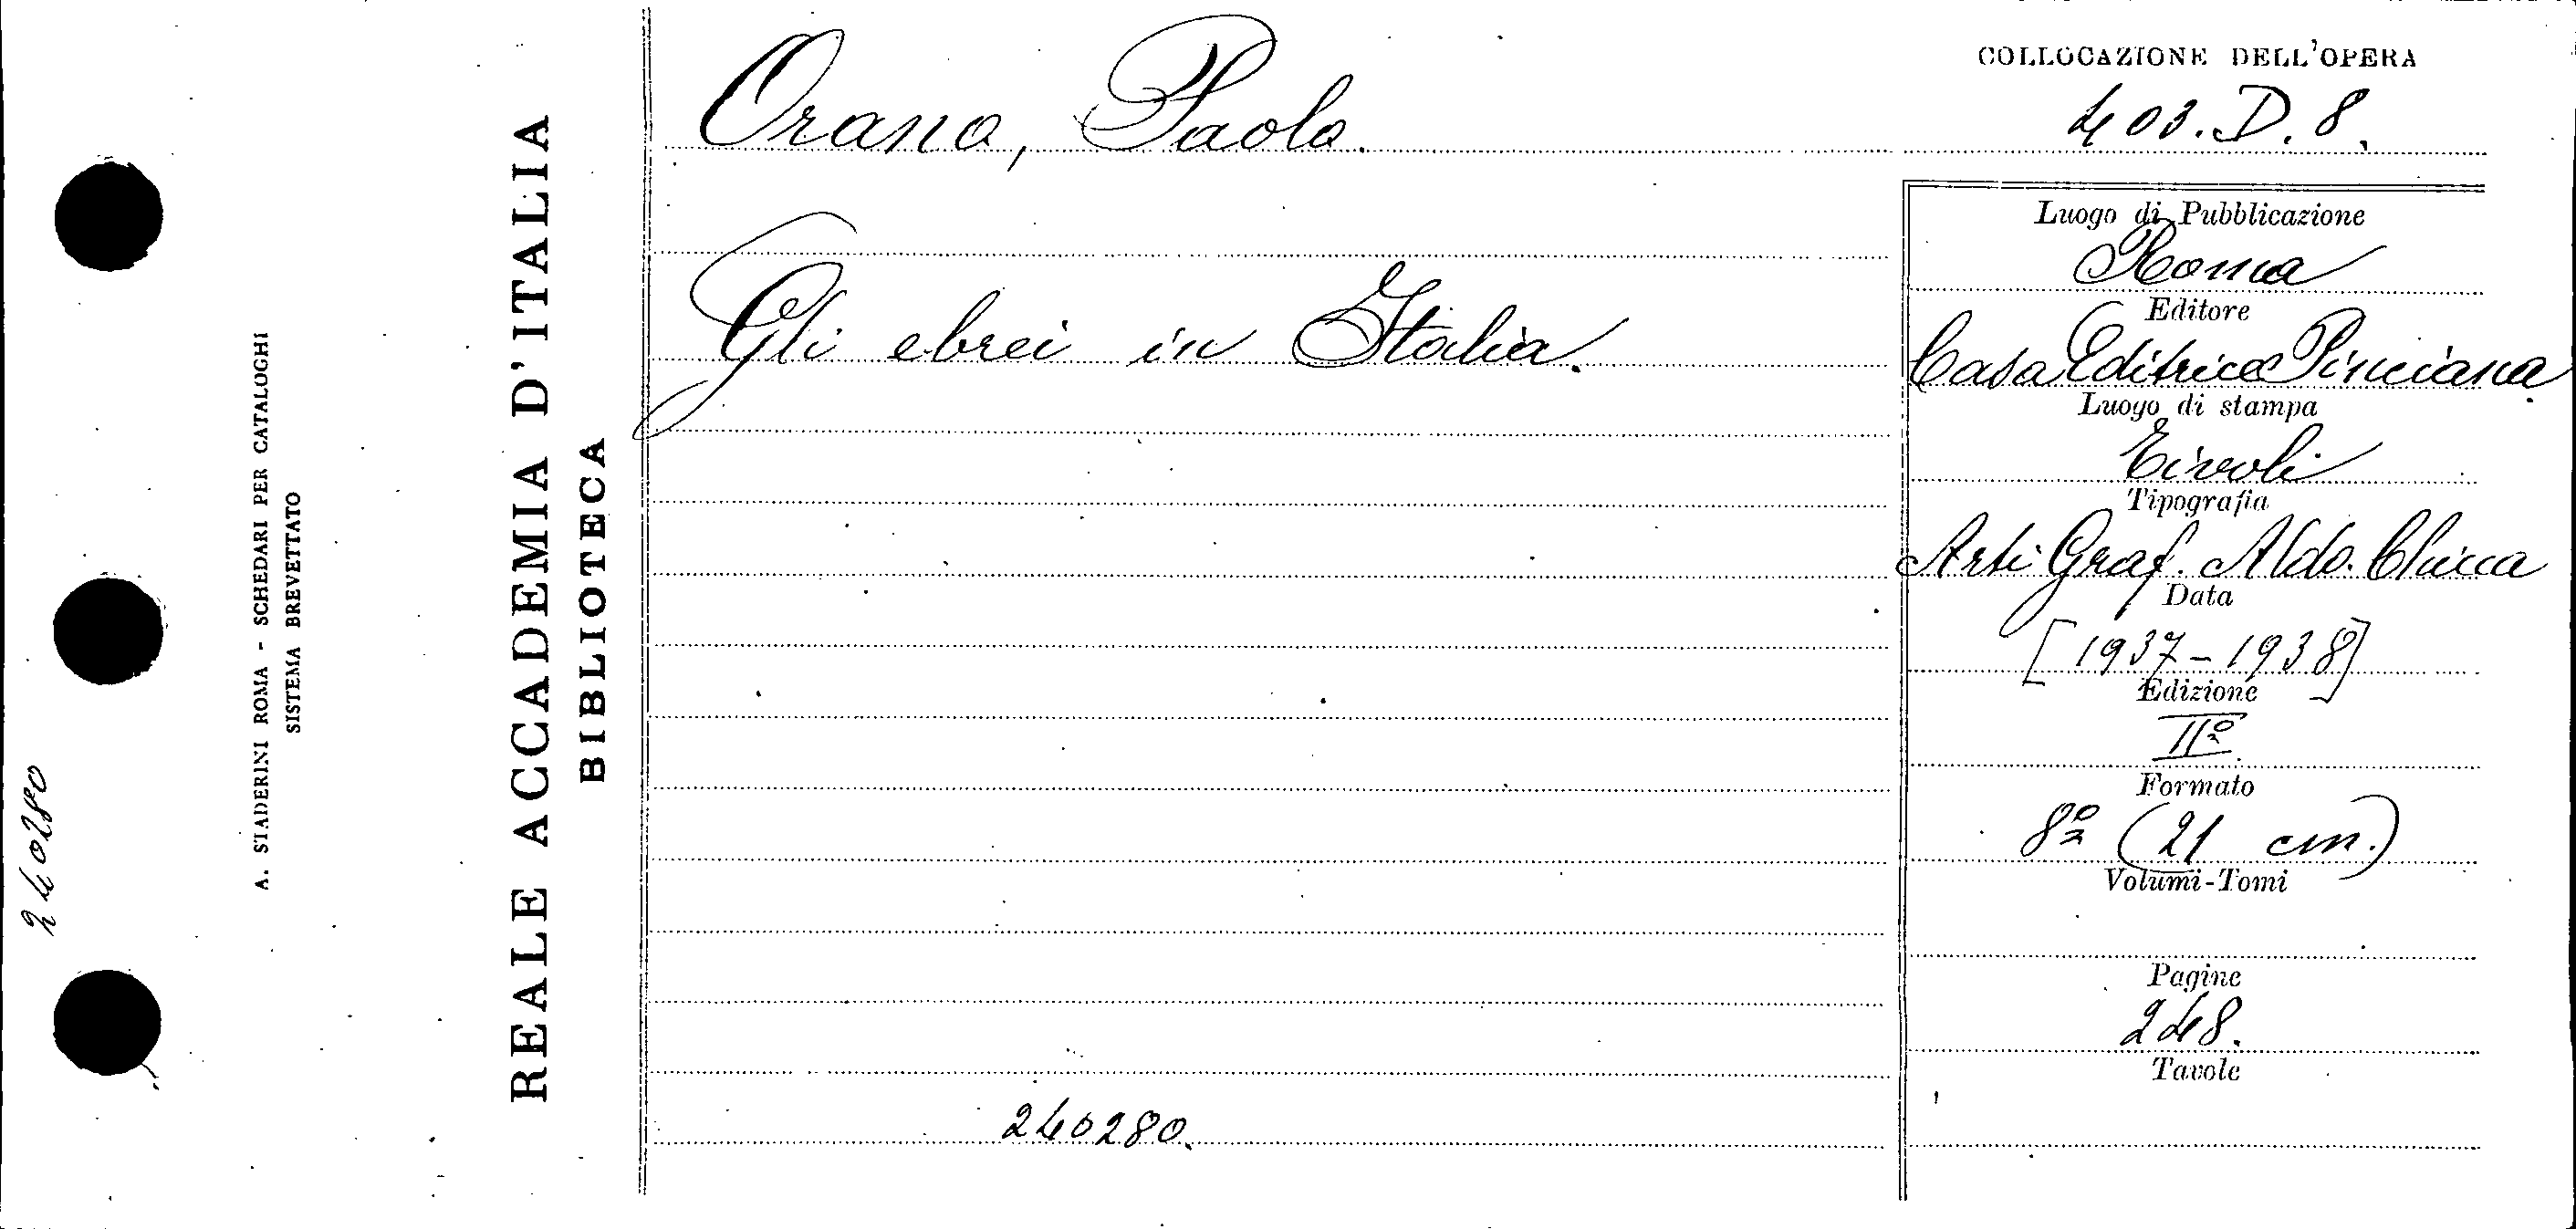 240280
A. STADERINI ROMA - SCHEDARI PER CATALOGHI
SISTEMA BREVETTATO
REALE ACCADEMIA D'ITALIA
BIBLIOTECA
Orano, Paolo.
Gli ebrei in Italia.
240280.
COLLOCAZIONE DELL'OPERA
403.D.8.
Luogo di Pubblicazione
Roma
Editore
Casa Editrice Pinciana.
Luogo di stampa
Tivoli
Tipografia
Arti Graf. Aldo Chicca
Data
[1937-1938]
Edizione
IIª
Formato
8º (21 cm.)
Volumi-Tomi
Pagine
248.
Tavole